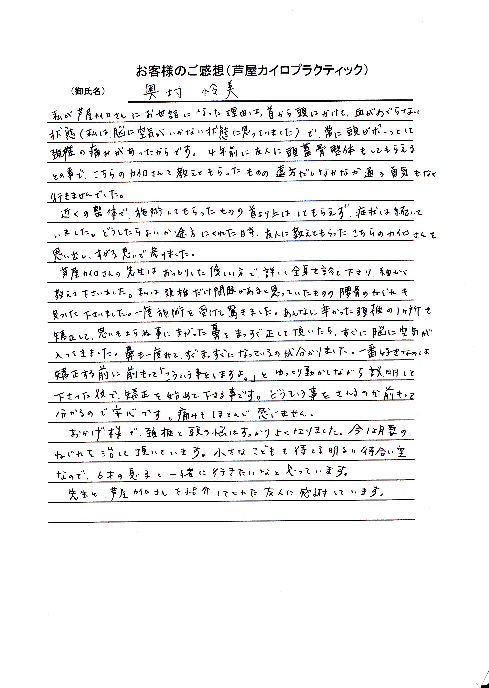 お客様のご感想(芦屋カイロプラクティック)
(御氏名) 奥村 怜美
私が芦屋カイロさんにお世話になった理由は、首から頭にかけて、血がめぐらない
状態(私は、脳に空気がいかない状態に思っていました)で、常に頭がボーっとして
頚椎の痛みがあったからです。4年前に友人に頭蓋骨整体をしてもらえる
との事で、こちらのカイロさんを教えてもらったものの遠方でしなかなか通う勇気もなく
行きませんでした。
近くの整体で、施術してもらったものの首より上はしてもらえず、症状は続いて
いました。どうしたらよいか途方にくれた時、友人に教えてもらったこちらのカイロさんを
思い出し、すがる思いで参りました。
芦屋カイロさんの先生はおっとりした優しい方で詳しく全身を診て下さり 細かく
教えて下さいました。私は頚椎だけ問題があると思っていたものの腰骨のねじれも
見つけて下さいました。一度施術を受けて驚きました。あんなに辛かった頚椎の1ヶ所を
矯正して、思いもよらぬ事にまがった鼻をまっすぐ正して頂いたら、すぐに脳に空気が
入ってきました。鼻も一度で、まっすぐになっているのが分かりました。一番好きなのは
矯正する前に前もって「こういう事をしますよ。」とゆっくり動かしながら説明して
下さった後で、矯正を始めて下さる事です。どういう事をされるのか前もって
分かるので安心です。痛みもほとんど感じません。
おかげ様で、頚椎と頭の悩はすっかりよくなりました。今は腰の
ねじれを治して頂いています。小さなこどもも待てる明るい待合い室
なので、6才の息子と一緒に行きたいなと思っています。
先生と芦屋カイロさんを紹介してくれた友人に感謝しています。